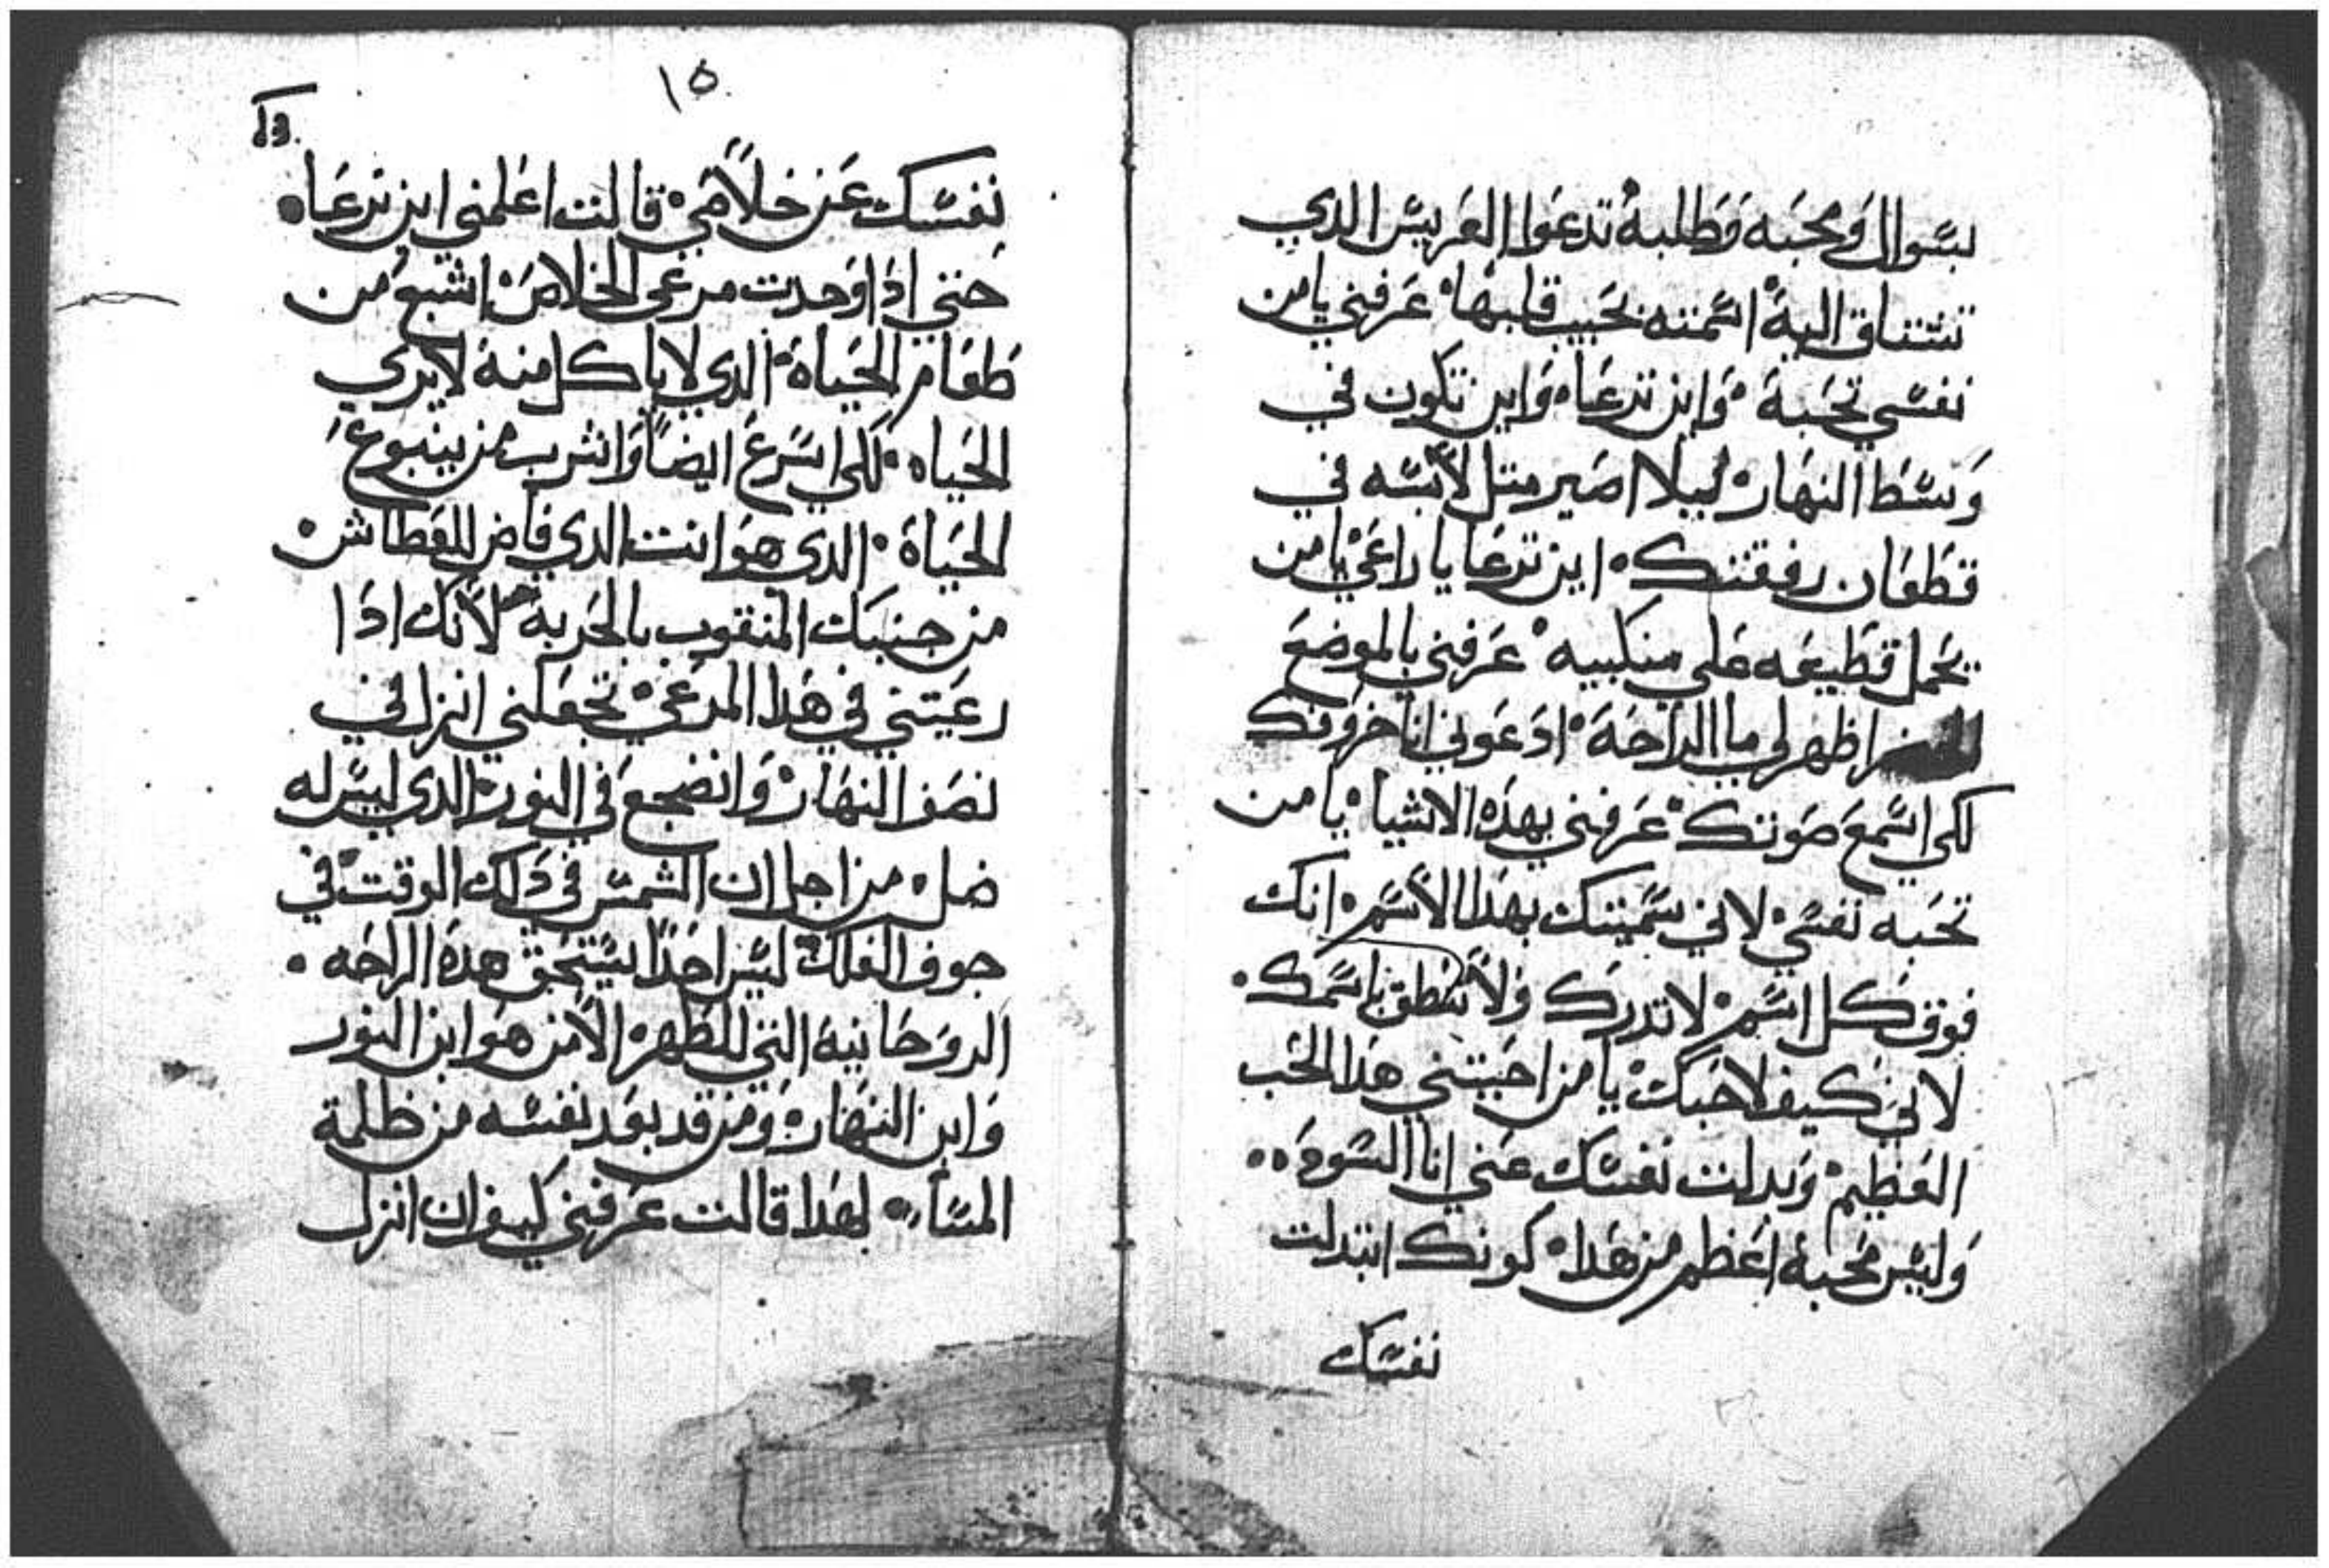 بسوال ومحبه وطلبة تدعوا العريس الدي
تشتاق الية اسمته بحبيب قلبها عرفني يا من
نفسي تحبة واين ترعاه واين تكون في
وسط النهار ليلا اصير متل لابسه في
قطعان رفقتك اين ترعا يا راعي يا من
يحمل قطيعه علي منكبيه عرفني بالموضع
اظهر لي ما الراحة ادعوني انا خروفك
لكي اسمع صوتك عرفني بهده الاشياء يا من
تحبه نفسي لاني سميتك بهدا الاسم انك
فوق كل اسم لا تدرك ولا ينطق باسمك
لاني كيف لا احبك يا من احبيتني هدا الحب
العظيم وبدلت نفسك عني انا السودة
وليس محبة اعظم من هدا كونك ابتدلت
نفسك
١٥
نفسك عن خلاصي قالت اعلمني اين ترعاه
حتي ادا وجدت مرعي الخلاص اشبع من
طعام الحياة الدي لا ياكل منة لا يري
الحياه لكي اسرع ايضا واشرب من ينبوع
الحياة الدي هو انت الدي فاض للعطاش
من جنبك المتقوب بالحربة لانك ادا
رعيتني في هدا المرعي تجعلني انزل في
نصف النهار وانضجع في النور الدي ليس له
ضل من اجل ان الشمس في داك الوقت في
جوف الفلك ليس احدا يستحق هده الراحه
الروحانية التي للظهر الا من هو ابن النور
وابن النهار ومن قد بعد نفسه من ظلمة
المساء لهدا قالت عرفني كيف ان انزل